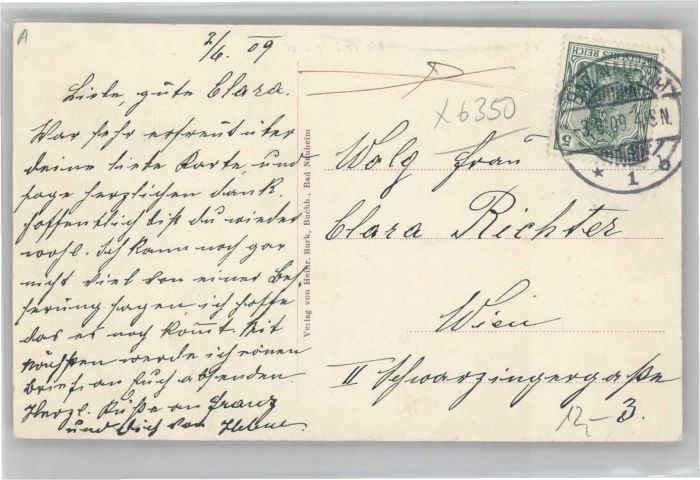 A
2/6. 09
Liebe, gute Clara.
War sehr erfreut über
deine liebe Karte, und
sage herzlichen Dank.
hoffentlich bist du wieder
wohl. Ich kann noch gar
nicht viel von einer Bes-
serung sagen, ich hoffe
das es noch kommt. Mit
nächsten werde ich einen
Brief an Euch absenden.
Herzl. Küße an Franz
und Dich von
Verlag von Heinr. Burk, Buchh., Bad Nauheim
X 6350
DEUTSCHES REICH
5
BAD NAUHEIM
09 4-5 N.
* 1 b
Wolg Frau
Clara Richter
Wien
II Schwarzingergaße
3.
12,-